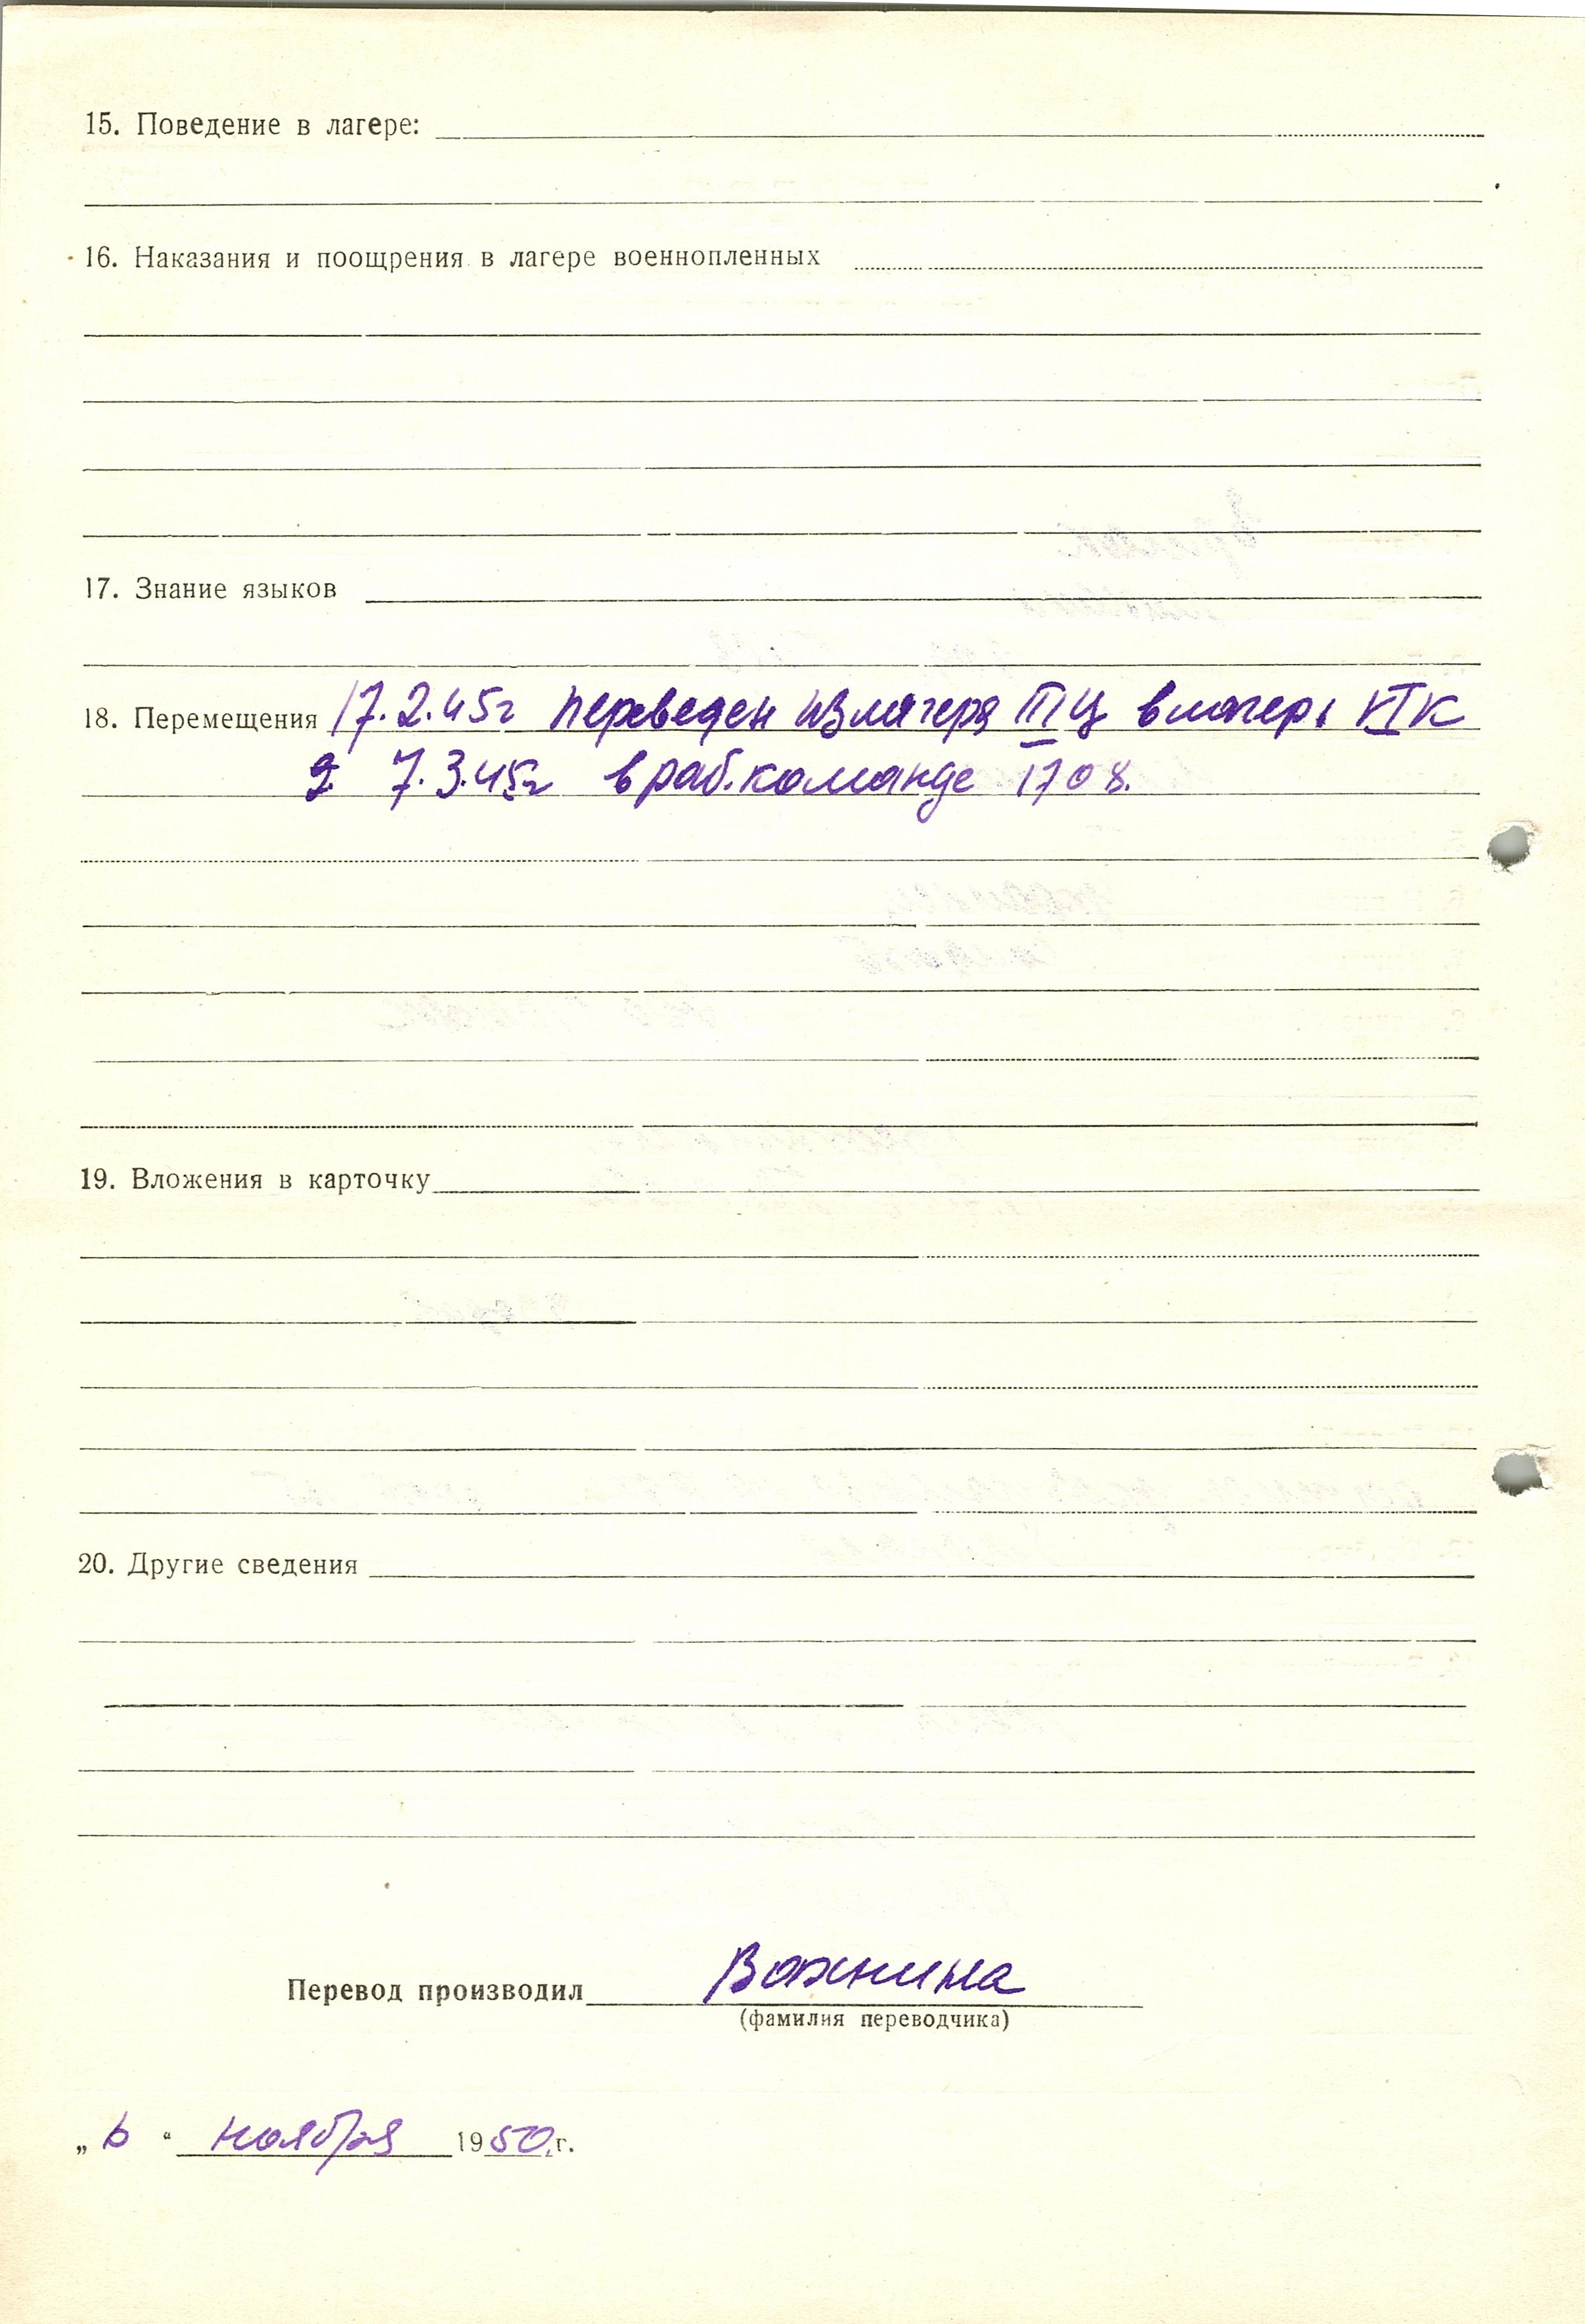 15. Поведение в лагере:
16. Наказания и поощрения в лагере военнопленных
17. Знание языков
18. Перемещения 17.2.45г переведен из лагеря III Ц в лагерь VI К
7.3.45г в раб. команде 1708.
19. Вложения в карточку
20. Другие сведения
Перевод производил Важнина
(фамилия переводчика)
„6“ ноября 1950 г.